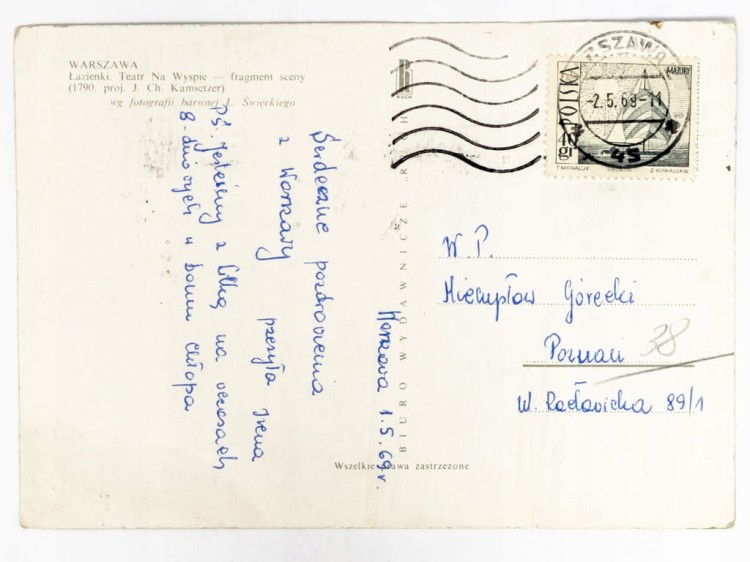 WARSZAWA
Łazienki. Teatr Na Wyspie — fragment sceny
(1790, proj. J. Ch. Kamsetzer)
wg fotografii barwnej L. Święckiego
Warszawa 1.5.69 r.
Serdeczne pozdrowienia
z Warszawy przesyła Irena
PS. Jesteśmy z Lilką na wczasach
8-dniowych w Domu Chłopa
BIURO WYDAWNICZE RUCH
Wszelkie prawa zastrzeżone
WARSZAWA
-2.5.69-11
* 45 *
POLSKA
MAZURY
40 gr
T. MICHALUK
Z. KOWALSKI
W.P.
Mieczysław Górecki
Poznań 38
ul. Racławicka 89/1